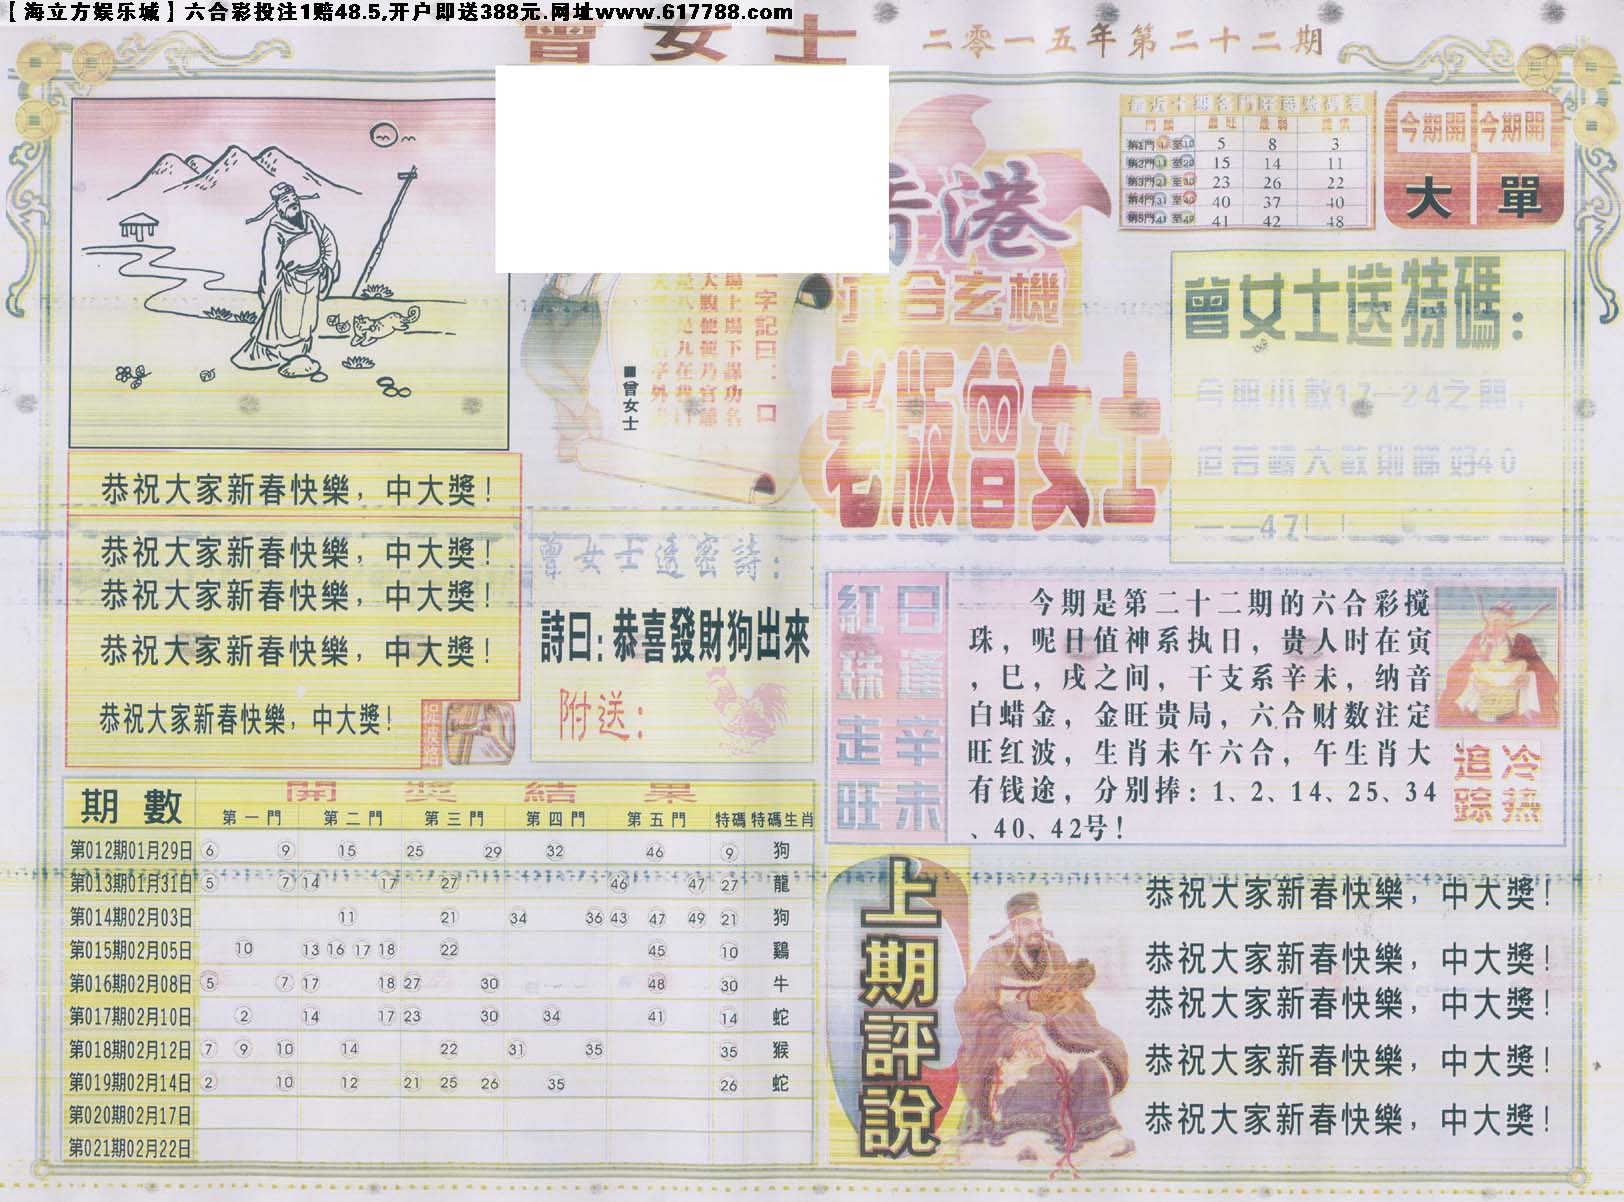 【海立方娱乐城】六合彩投注1赔48.5,开户即送388元.网址www.617788.com
曾女士
二零一五年第二十二期
恭祝大家新春快樂，中大獎！
恭祝大家新春快樂，中大獎！
恭祝大家新春快樂，中大獎！
恭祝大家新春快樂，中大獎！
恭祝大家新春快樂，中大獎！
一字記曰：口
■曾女士
港
六合玄機
老版曾女士
最近十期各門旺弱
門類 最旺 最弱
第1門 1至10 5 8 3
第2門 11至20 15 14 11
第3門 21至30 23 26 22
第4門 31至40 40 37 40
第5門 41至49 41 42 48
今期開 今期開
大 單
曾女士送特碼：
今期小數17—24之間，
但若轉大數則睇好40
——47！！
曾女士透密詩：
詩曰：恭喜發財狗出來
附送：
紅珠走旺
日逢辛未
今期是第二十二期的六合彩搅
珠，呢日值神系执日，贵人时在寅
，巳，戌之间，干支系辛未，纳音
白蜡金，金旺贵局，六合财数注定
旺红波，生肖未午六合，午生肖大
有钱途，分别捧：1、2、14、25、34
、40、42号！
追冷
踪热
期數 開獎結果
第一門 第二門 第三門 第四門 第五門 特碼 特碼生肖
第012期01月29日 6 9 15 25 29 32 46 9 狗
第013期01月31日 5 7 14 17 27 46 47 27 龍
第014期02月03日 11 21 34 36 43 47 49 21 狗
第015期02月05日 10 13 16 17 18 22 45 10 鷄
第016期02月08日 5 7 17 18 27 30 48 30 牛
第017期02月10日 2 14 17 23 30 34 41 14 蛇
第018期02月12日 7 9 10 14 22 31 35 35 猴
第019期02月14日 2 10 12 21 25 26 35 26 蛇
第020期02月17日
第021期02月22日
上期評說
恭祝大家新春快樂，中大獎！
恭祝大家新春快樂，中大獎！
恭祝大家新春快樂，中大獎！
恭祝大家新春快樂，中大獎！
恭祝大家新春快樂，中大獎！